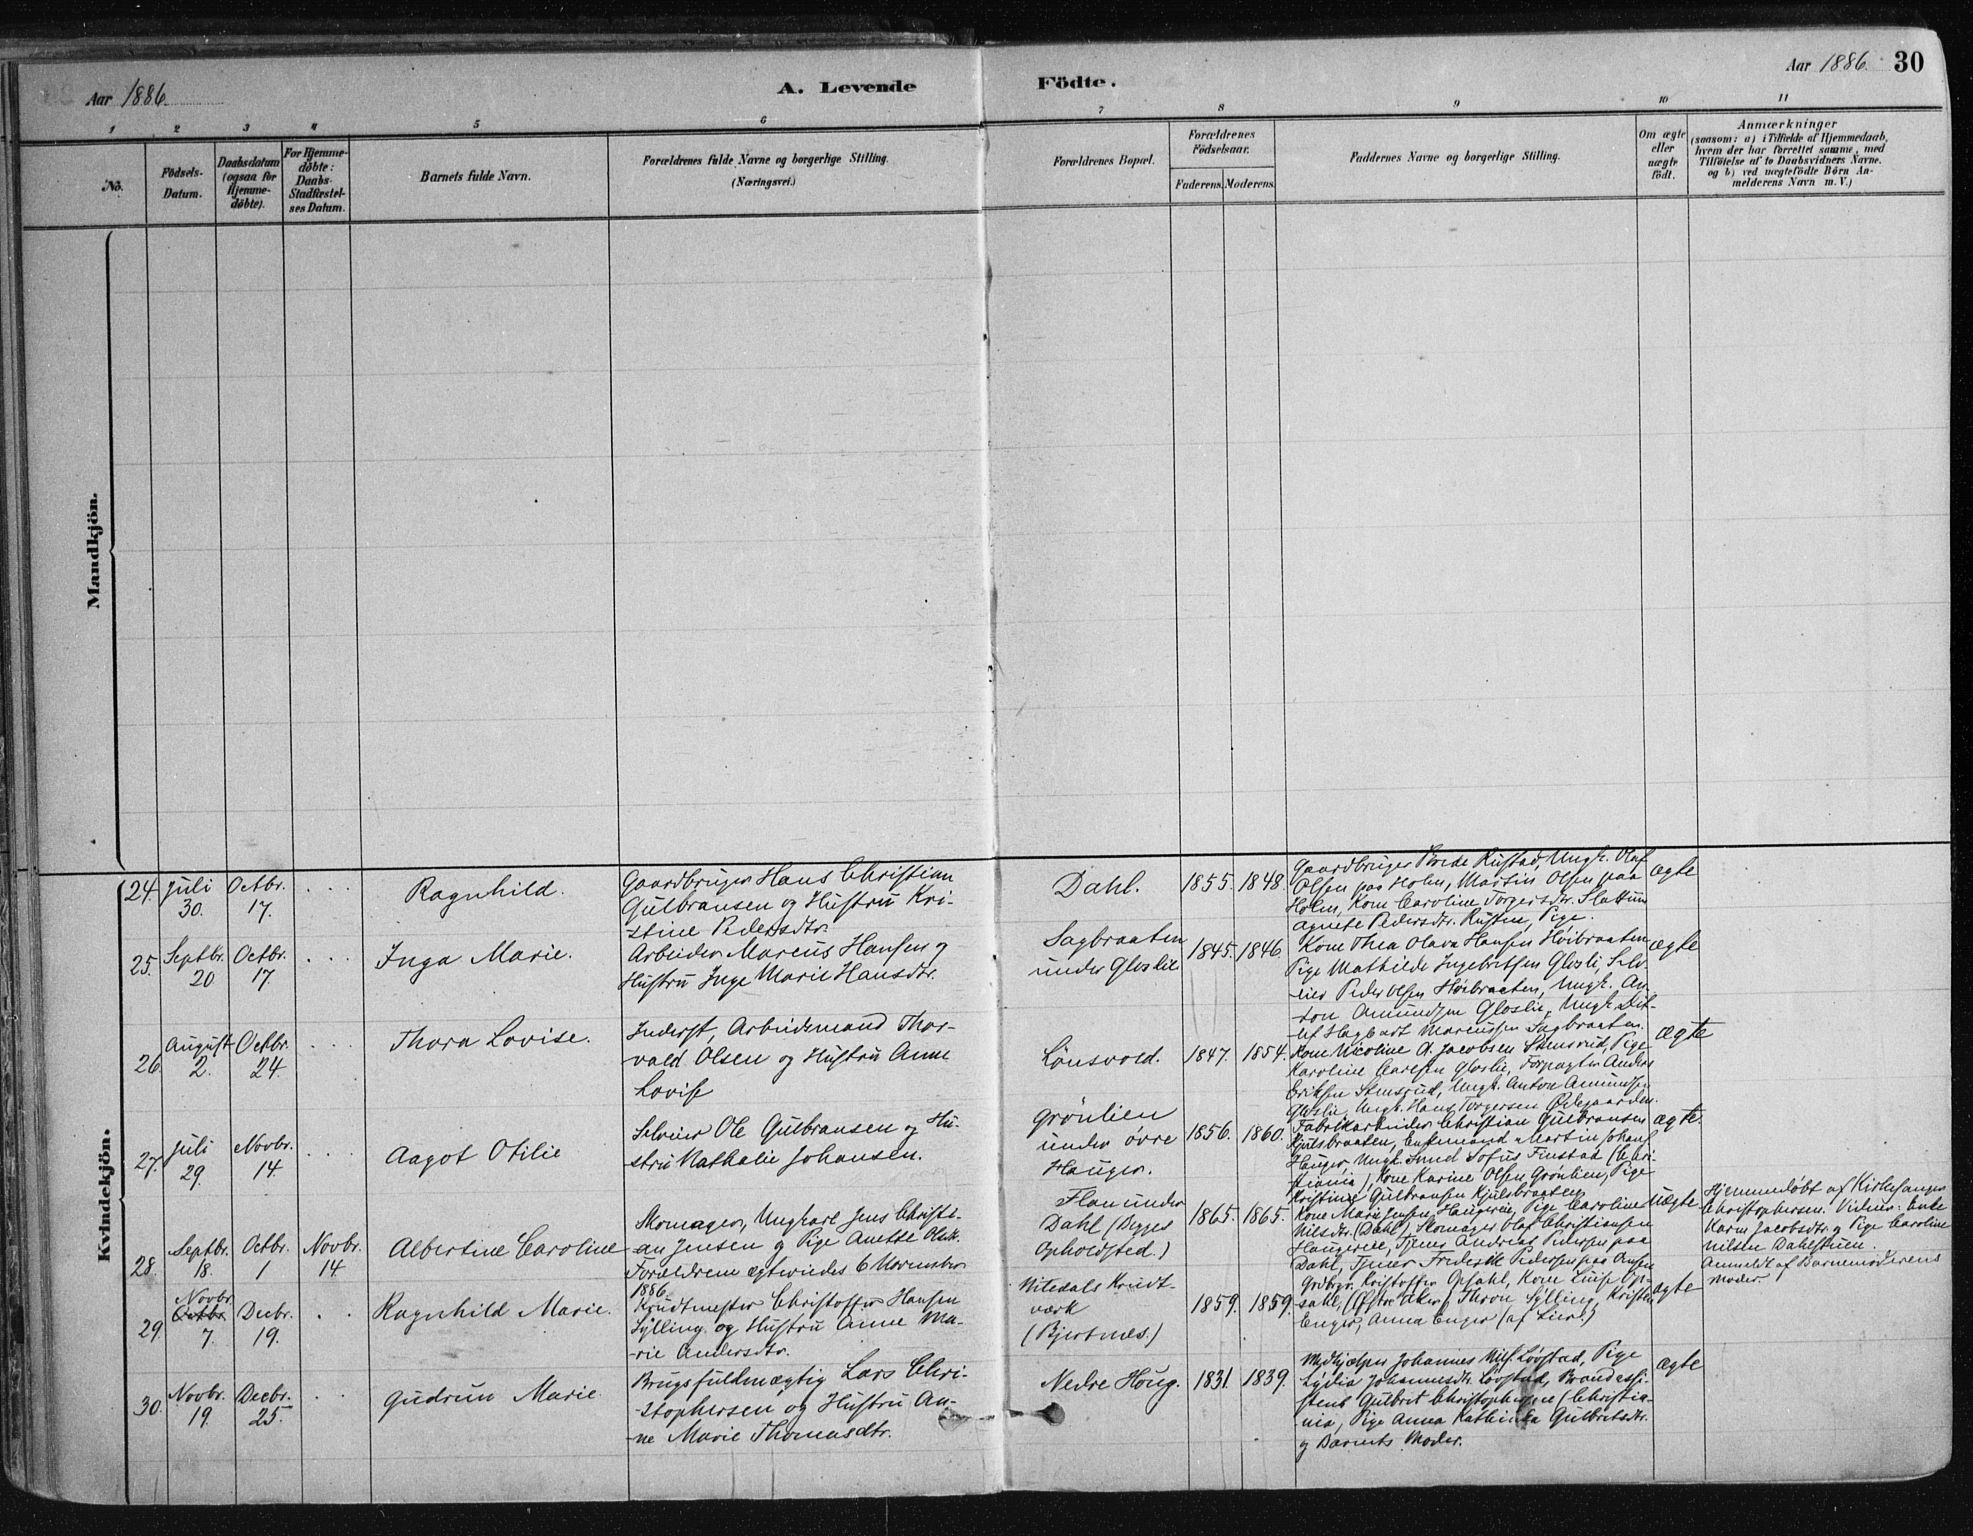 Aar 1886.
A. Levende
Födte.
Aar 1886.
30
1 2 3 4 5 6 7 8 9 10 11
No.
Födsels-
Datum.
Daabsdatum
(ogsaa for
Hjemme-
döbte).
For Hjemme-
döbte:
Daabs-
Stadfæstel-
ses Datum.
Barnets fulde Navn.
Forældrenes fulde Navne og borgerlige Stilling.
(Næringsvei.)
Forældrenes Bopæl.
Forældrenes
Födselsaar.
Faderens. Moderens.
Faddernes Navne og borgerlige Stilling.
Om ægte
eller
uægte
födt.
Anmærkninger
(saasom: a) i Tilfælde af Hjemmedaab,
hvem der har forrettet samme, med
Tilföielse af to Daabsvidners Navne.
og b) ved uægtefödte Börn An-
melderens Navn m. V.)
Mandkjön.
Kvindekjön.
24.
Juli
30.
Octbr.
17.
Ragnhild.
Gaardbruger Hans Christian
Gulbransen og Hustru Kri-
stine Pedersdtr.
Dahl.
1855.
1848.
Gaardbruger Brede Rustad, Ungk. Olaf
Olsen paa Holm, Martin Olsen paa
Holm, Kone Caroline Torgersdtr. Slattum
Agnete Pedersdtr. Rusten, Pige.
ægte
25.
Septbr.
20
Octbr.
17.
Inga Marie.
Arbeider Marcus Hansen og
Hustru Inge Marie Hansdtr.
Sagbraaten
under Gloslie
1845.
1846.
Kone Thea Olava Hansen Høibraaten
Pige Mathilde Ingebretsen Glosli, Selv-
eier Peder Olsen Høibraaten, Ungk. An-
ton Amundsen Gloslie, Ungk. Det-
lef Hagbart Marcussen Sagbraaten.
ægte
26
August
2.
Octbr.
24.
Thora Lovise.
Inderst, Arbeidsmand Thor-
vald Olsen og Hustru Anne
Lovise
Lønsvold.
1847.
1854.
Kone Nicoline A. Jacobsen Stensrud, Pige
Karoline Carlsen Gloslie, Forpagter Anders
Eriksen Stensrud, Ungk. Anton Amundsen
Gloslie, Ungk. Hans Torgersen Ødegaarden.
ægte
27.
Juli
29.
Novbr.
14.
Aagot Otilie
Selveier Ole Gulbransen og Hu-
stru Nathalie Johansen.
Grønlien
under øvre
Hauger.
1856.
1860.
Fabrikarbeider Christian Gulbransen
Kjulsbraaten, Enkemand Martin Johans.
Hauger, Ungk. Smed Sofus Finstad (Chri-
stiania), Kone Karine Olsen Grønlien, Pige
Kristine Gulbransen Kjulsbraaten
ægte.
28.
Septbr.
18.
Octbr.
1
Novbr.
14.
Albertine Caroline
Skomager, Ungkarl Jens Christi-
an Jensen og Pige Anette Olsdtr.
Forældrene ægteviedes 6 November
1886.
Flaen under
Dahl (Begges
Opholdsted.)
1865.
1865.
Kone Marie Jensen Haugereie, Pige Caroline
Nilsdtr. (Dahl), Skomager Olaf Christiansen
Haugereie, Tjener Andreas Pedersen paa
Dahl, Tjener Frederik Pedersen paa
Uægte
Hjemmedøbt af Kirkesanger
Christophersen. Vidner: Enke
Karen Jacobsdtr. og Pige Caroline
Nilsen Dahlstuen.
Anmeldt af Barnemoderens
Moder.
29.
Novbr.
Octbr.
7.
Decbr.
19.
Ragnhild Marie.
Krudtmester Christoffer Hansen
Sylling og Hustru Anne Ma-
rie Andersdtr.
Nitedals Krudt-
værk
(Bjertnes.)
1859.
1859.
Grdbgr. Kristoffer Opsahl, Kone Luise Op-
sahl, (Østre Aker) Thron Sylling, Kristen
Enger, Anna Enger (af Lier.)
ægte
30.
Novbr.
19.
Decbr.
25.
Gudrun Marie.
Brugsfuldmægtig Lars Chri-
stophersen og Hustru An-
ne Marie Thomasdtr.
Nedre Houg.
1831.
1839.
Medhjælper Johannes Nils. Løvstad, Pige
Lydia Johannesdtr. Løvstad, Brandassi-
stent Gulbret Christophersen (Christia-
nia), Pige Anna Kathinka Gulbretsdtr.
og Barnets Moder.
ægte